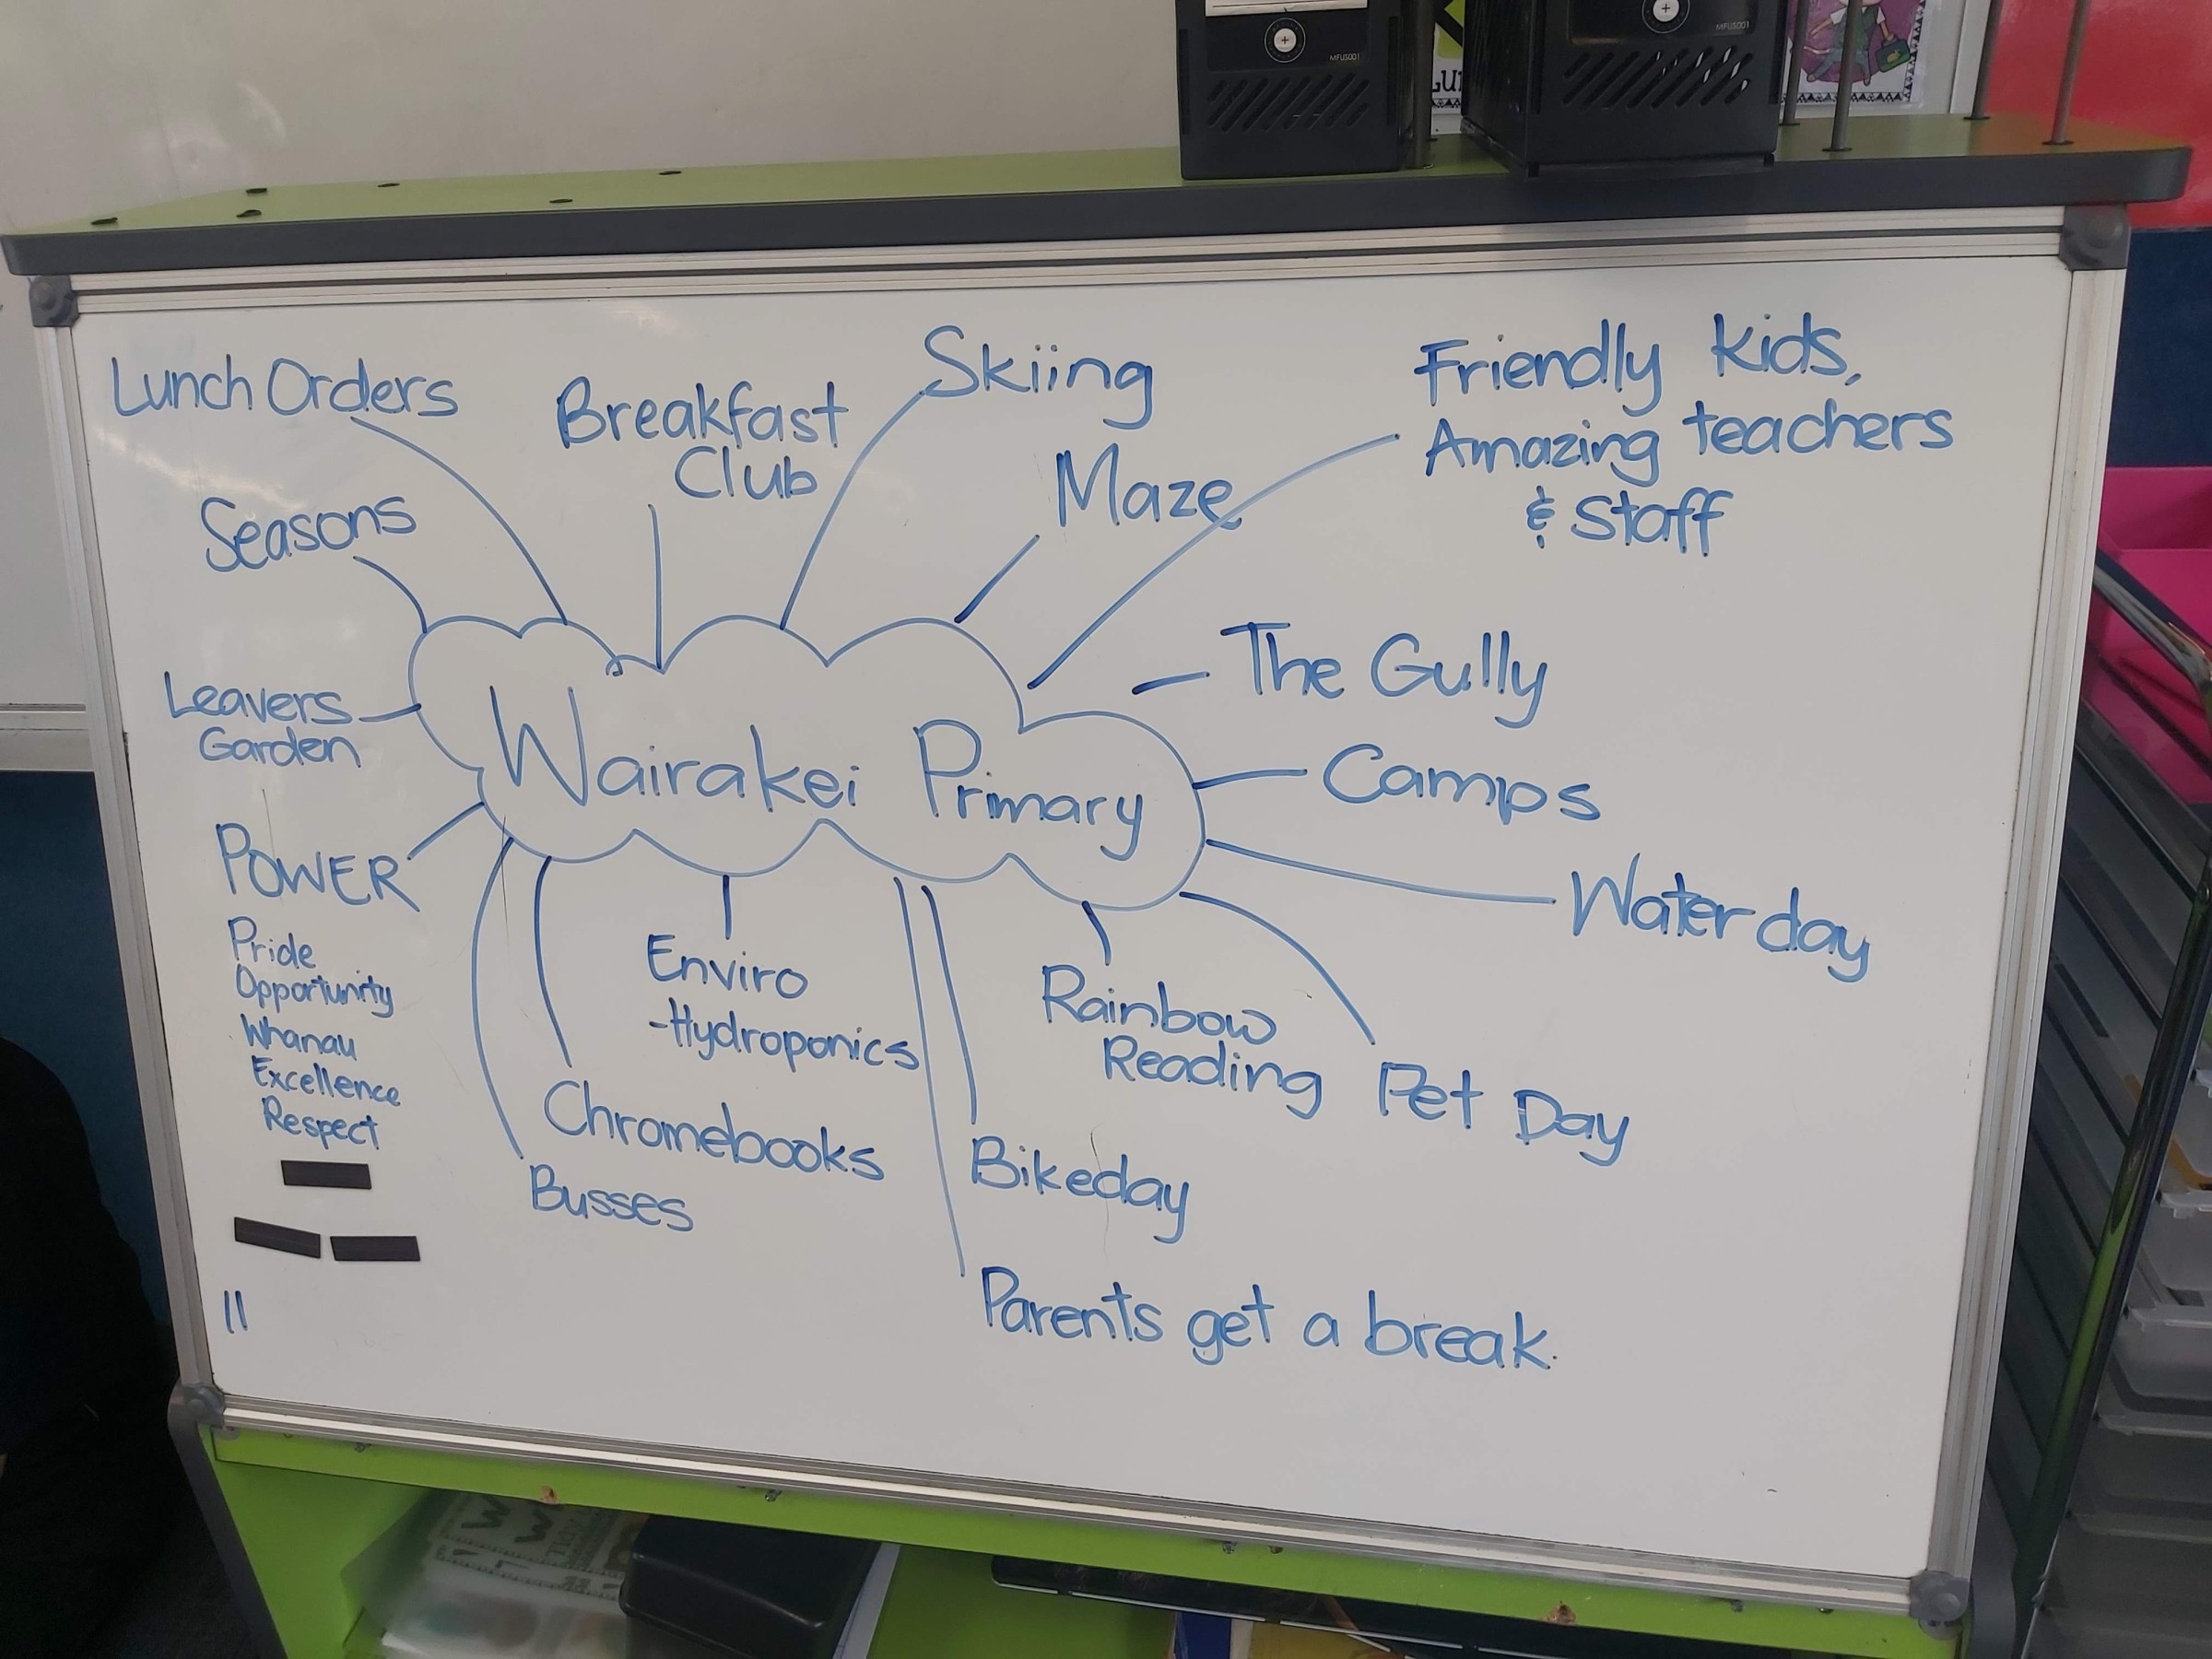 MFUS001
MFUS001
Lunch Orders
Breakfast
Club
Skiing
Maze
Friendly Kids,
Amazing teachers
& Staff
Seasons
The Gully
Leavers
Garden
Wairakei Primary
Camps
POWER
Pride
Opportunity
Whanau
Excellence
Respect
Water day
Enviro
-Hydroponics
Rainbow
Reading
Pet Day
Chromebooks
Busses
Bikeday
Parents get a break.
11